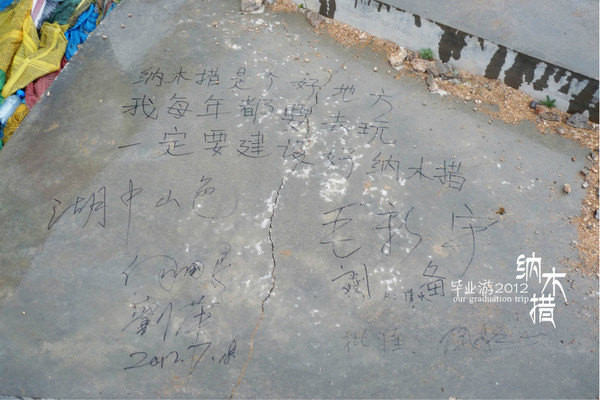 纳木措是个好地方
我每年都要去玩
一定要建设好纳木措
湖中山色
毛新宇
刘备
2012.7.
纳木措
毕业游2012
our graduation trip